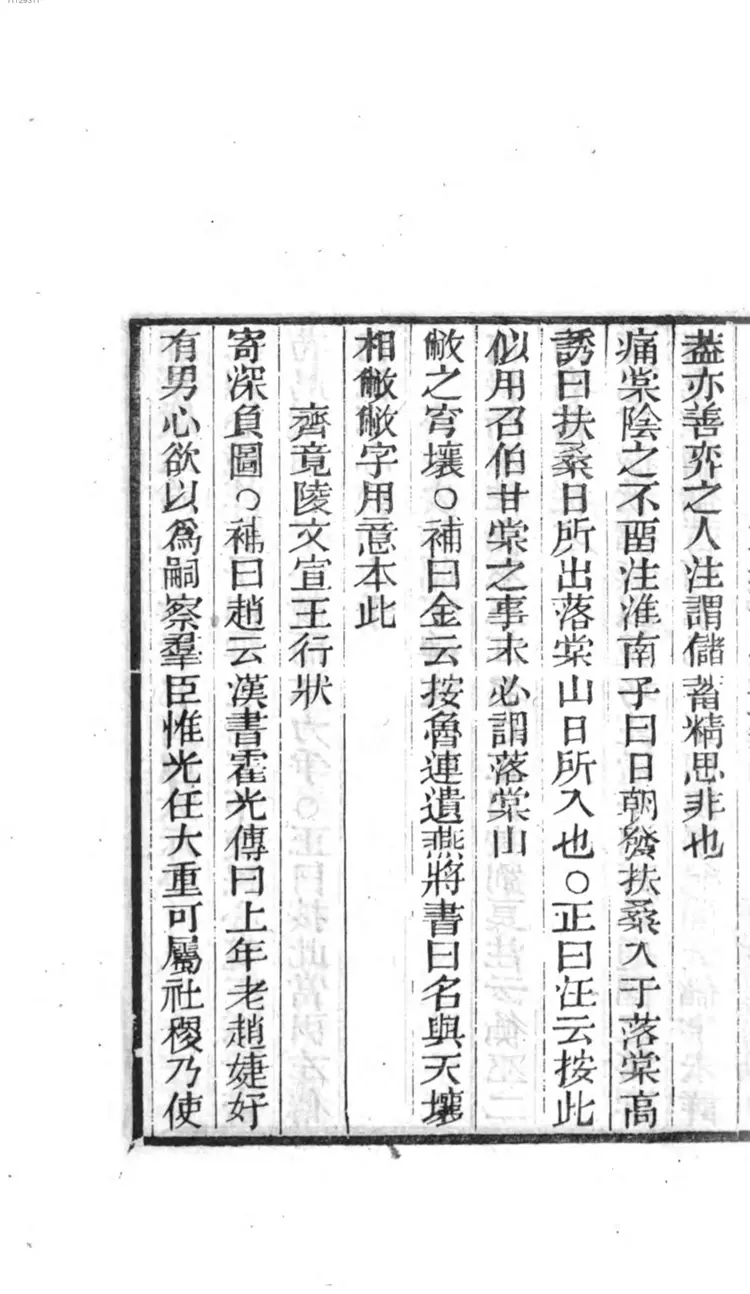 11129311
葢亦善弈之人注謂儲蓄精思非也
痛棠陰之不畱注淮南子曰日朝發扶桑入于落棠高
誘曰扶桑日所出落棠山日所入也○正曰汪云按此
似用召伯甘棠之事未必謂落棠山
敝之穹壤○補曰金云按魯連遺燕將書曰名與天壤
相敝敝字用意本此
齊竟陵文宣王行狀
寄深負圖○補曰趙云漢書霍光傳曰上年老趙婕妤
有男心欲以爲嗣察羣臣惟光任大重可屬社稷乃使